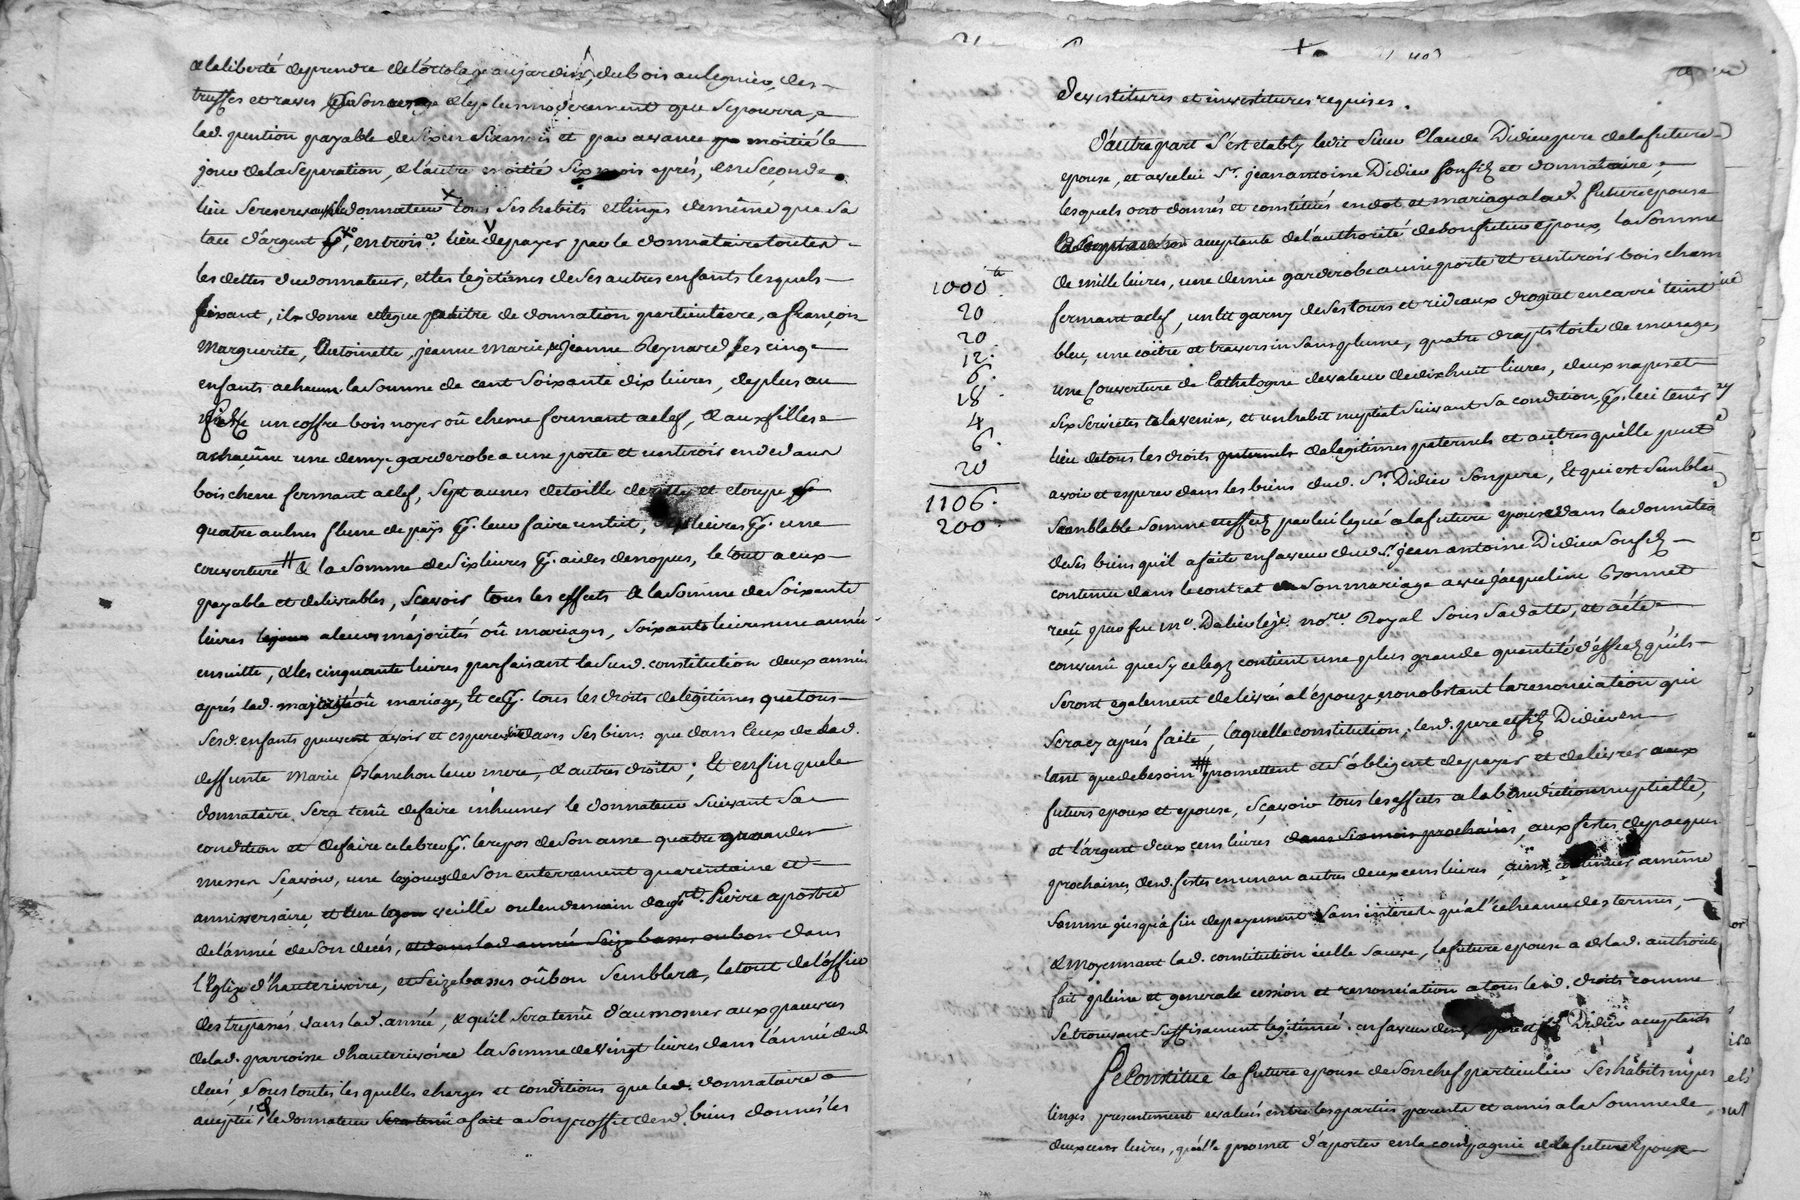 & la liberté de prendre de l'ortolage au jardin, du bois au legnier, des
truffes et raves son usage & le plus moderement que se pourra,
lad. pention payable de six en six mois et par avance moitié le
jour de la separation, & l'autre moitié six mois aprés, en seconde
lieu se reserve led. donnateur tous ses habits et linges de même que sa
tace d'argent, en trois.e lieu de payer par le donnataire toutes
les dettes du donnateur, et les legitimes de ses autres enfants lesquels
faisant, il donne et legue a titre de donnation particuliere, a françois
Marguerite, Antoinette, jeanne Marie, & jeanne Reynard ses cinq
enfants a chacun la somme de cent soixante dix livres, de plus au
fils un coffre bois noyer où chene fermant a clef, & aux filles
a chacune une demy garderobe a une porte et un tiroir en dedans
bois chene fermant a clef, sept aunes de toille de et etoupe
quatre aulnes flene de païs pr. leur faire un lit, livres pr. une
couverture # & la somme de six livres pr. aides de nopces, le tout a eux
payable et delivrables, sçavoir tous les effets & la somme de soixante
livres a leurs majorités où mariages, soixante livres une année
ensuitte, & les cinquante livres parfaisant la sud. constitution deux années
aprés lad. majorité où mariage, Et ce pr. tous les droits de legitimes que tous
sesd. enfants peuvent avoir et esperer dans ses biens que dans ceux de lad.
deffunte Marie Blanchon leur mere, & autres droits; Et enfin que le
donnataire sera tenû de faire inhumer le donnateur suivant sa
condition et de faire celebrer pr. le repos de son ame quatre grandes
messes sçavoir, une le jour de son enterrement quarentaine et
anniversaire, et une veille ou lendemain de st. Pierre apostre
de l'année de son decés, et dans lad. année seize basses ou bon dans
l'Eglize d'hauterivoire, et seize basses où bon semblera, le tout de l'office
des trepassés dans lad. année, & qu'il sera tenû d'aumosner aux pauvres
de lad. parroisse d'hauterivoire la somme de vingt livres dans l'année dud.
decés, sous toutes lesquelles charges et conditions que led. donnataire a
accepté, & le donnateur sera tenû a fait a son proffit desd. biens donnés les
devetitures et investitures requises.
D'autre part s'est etably ledit sieur Claude Didier pere de la future
epouse, et avec lui Sr. jean antoine Didier son fils et donnataire,
lesquels ont donnés et constitués en dot et mariage a lad. future epouse
acceptante de l'authorité de son futur epoux, la somme
1000 ₶. de mille livres, une demie garderobe a une porte et un tiroir bois chene
20 fermant a clef, un lit garny de ses tours et rideaux droguet en carré teint
20 bleu, une coitre et traversin sans plume, quatre draps toile de menage,
12. une couverture de Cathalogne de valeur de dix huit livres, deux napes et
6.
18. six serviettes a la venise, et un habit nuptial suivant sa condition, pr. lui tenir
4
6. lieu de tous les droits de legitimes paternels et autres qu'elle peut
20 avoir et esperer dans les biens dud. Sr. Didier son pere, Et qui est semblable
1106.
200. semblable somme et effets par lui legué a la future epouse dans la donnation
de ses biens qu'il a faite en faveur dud. Sr. jean antoine Didier son fils
contenue dans le contrat de son mariage avec jacqueline Bonnet
reçû par feu Me. Dalier nore. Royal sous sa datte, et a été
convenû que sy ce legs contient une plus grande quantité d'effets qu'ils
seront egalement delivrés a l'epouze, nonobstant la renonciation qui
sera cy aprés faite, laquelle constitution, lesd. pere et fils Didier en
tant que de besoin # promettent et s'obligent de payer et delivrer aux
futurs epoux et epouse, sçavoir tous les effets a la benediction nuptielle,
et l'argent deux cens livres dans six mois prochaines, aux festes de pacques
prochaines, desd. festes en un an autres deux cens livres ainsi continuer a même
somme jusqu'à fin de payement sans interet qu'a l'echeance des termes,
& moyennant lad. constitution icelle sauve, la future epouse a de lad. authorité
fait pleine et generale cession et renonciation a tous lesd. droits comme
se trouvant suffisament legitimée en faveur desd. pere et fils Didier acceptants
Se Constitue la future epouse de son chef particulier ses habits nipes
linges presentement evalués entre les parties parents et amis a la somme de
deux cens livres, qu'elle promet d'aporter en la compagnie de la future Epouse